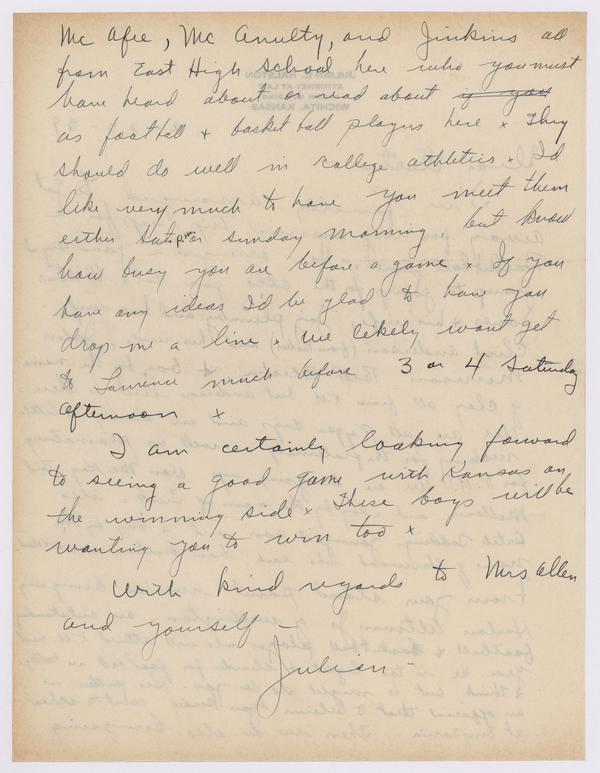 Mc Afee, Mc Anulty, and Jinkins all
from East High School here who you must
have heard about or read about if you
as football + basket ball players here x They
should do well in college athletics x I'd
like very much to have you meet them
either Sat pm or Sunday morning, but know
how busy you are before a game x If you
have any ideas I'd be glad to have you
drop me a line x We likely wont get
to Lawrence much before 3 or 4 Saturday
afternoon x
I am certainly looking forward
to seeing a good game with Kansas on
the winning side x These boys will be
wanting you to win too x
With kind regards to Mrs Allen
and yourself -
Julien -